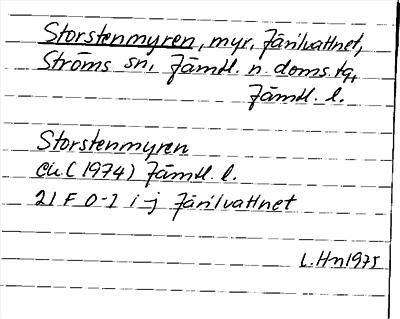 Storstenmyren, myr, Järilvattnet,
Ströms sn, Jämtl. n. doms. tg,
Jämtl. l.
Storstenmyren
Ek (1974) Jämtl. l.
21 F 0-1 i-j Järilvattnet
L. Hn 1975